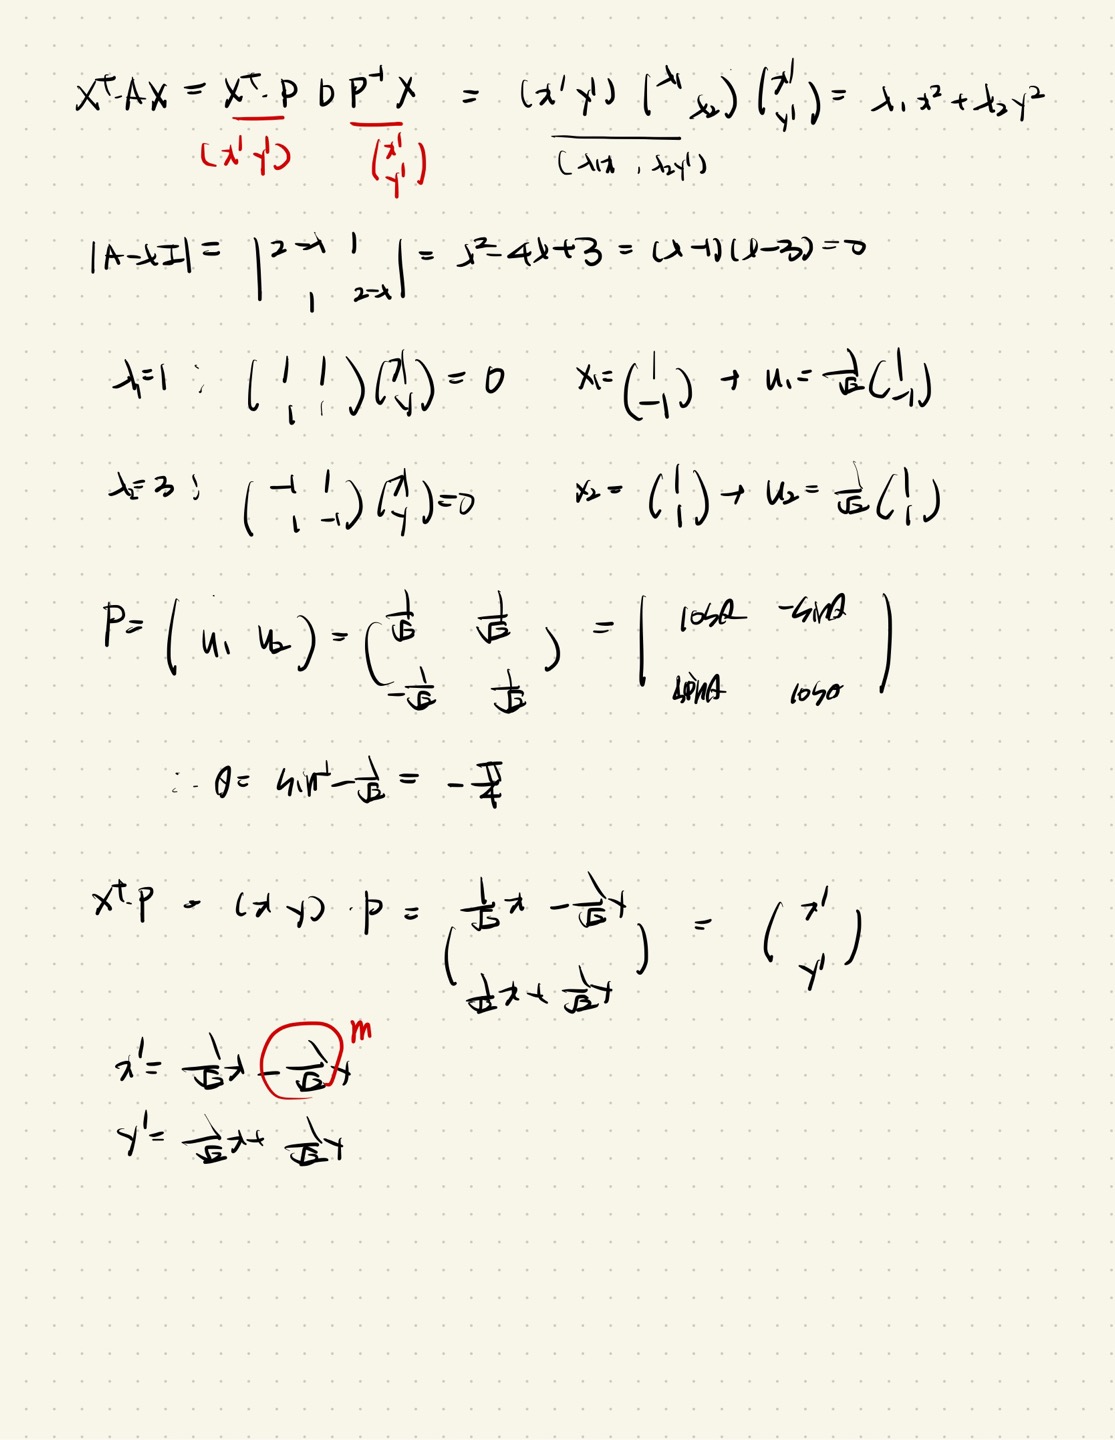 X^T·AX = X^T·P D P⁻¹ X = (x' y') (λ₁ λ₂) (x' y') = λ₁x² + λ₂y²
(x' y') (x' y') (λ₁x , λ₂y')
|A-λI| = |2-λ 1 1 2-λ| = λ²-4λ+3 = (λ-1)(λ-3) = 0
λ₁=1 : (1 1 1 1)(x y) = 0 x₁ = (1 -1) → u₁ = 1/√2 (1 -1)
λ₂=3 : (-1 1 1 -1)(x y) = 0 x₂ = (1 1) → u₂ = 1/√2 (1 1)
P = (u₁ u₂) = (1/√2 1/√2 -1/√2 1/√2) = (cosθ -sinθ sinθ cosθ)
∴ θ = sin⁻¹ -1/√2 = -π/4
X^T·P = (x y)·P = (1/√2 x - 1/√2 y 1/√2 x + 1/√2 y) = (x' y')
x' = 1/√2 x - 1/√2 y m
y' = 1/√2 x + 1/√2 y